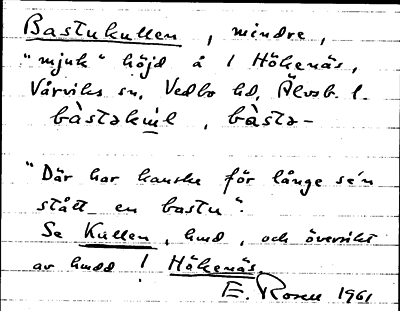 Bastukullen, mindre,
"mjuk" höjd å 1 Hökenäs,
Vårviks sn, Vedbo hd, Älvsb. l.
bàstəkùl, bàstə-
"Där har kanske för länge se'n
stått en bastu".
Se Kullen, hmd, och översikt
av hmdd 1 Hökenäs.
E. Rosell 1961